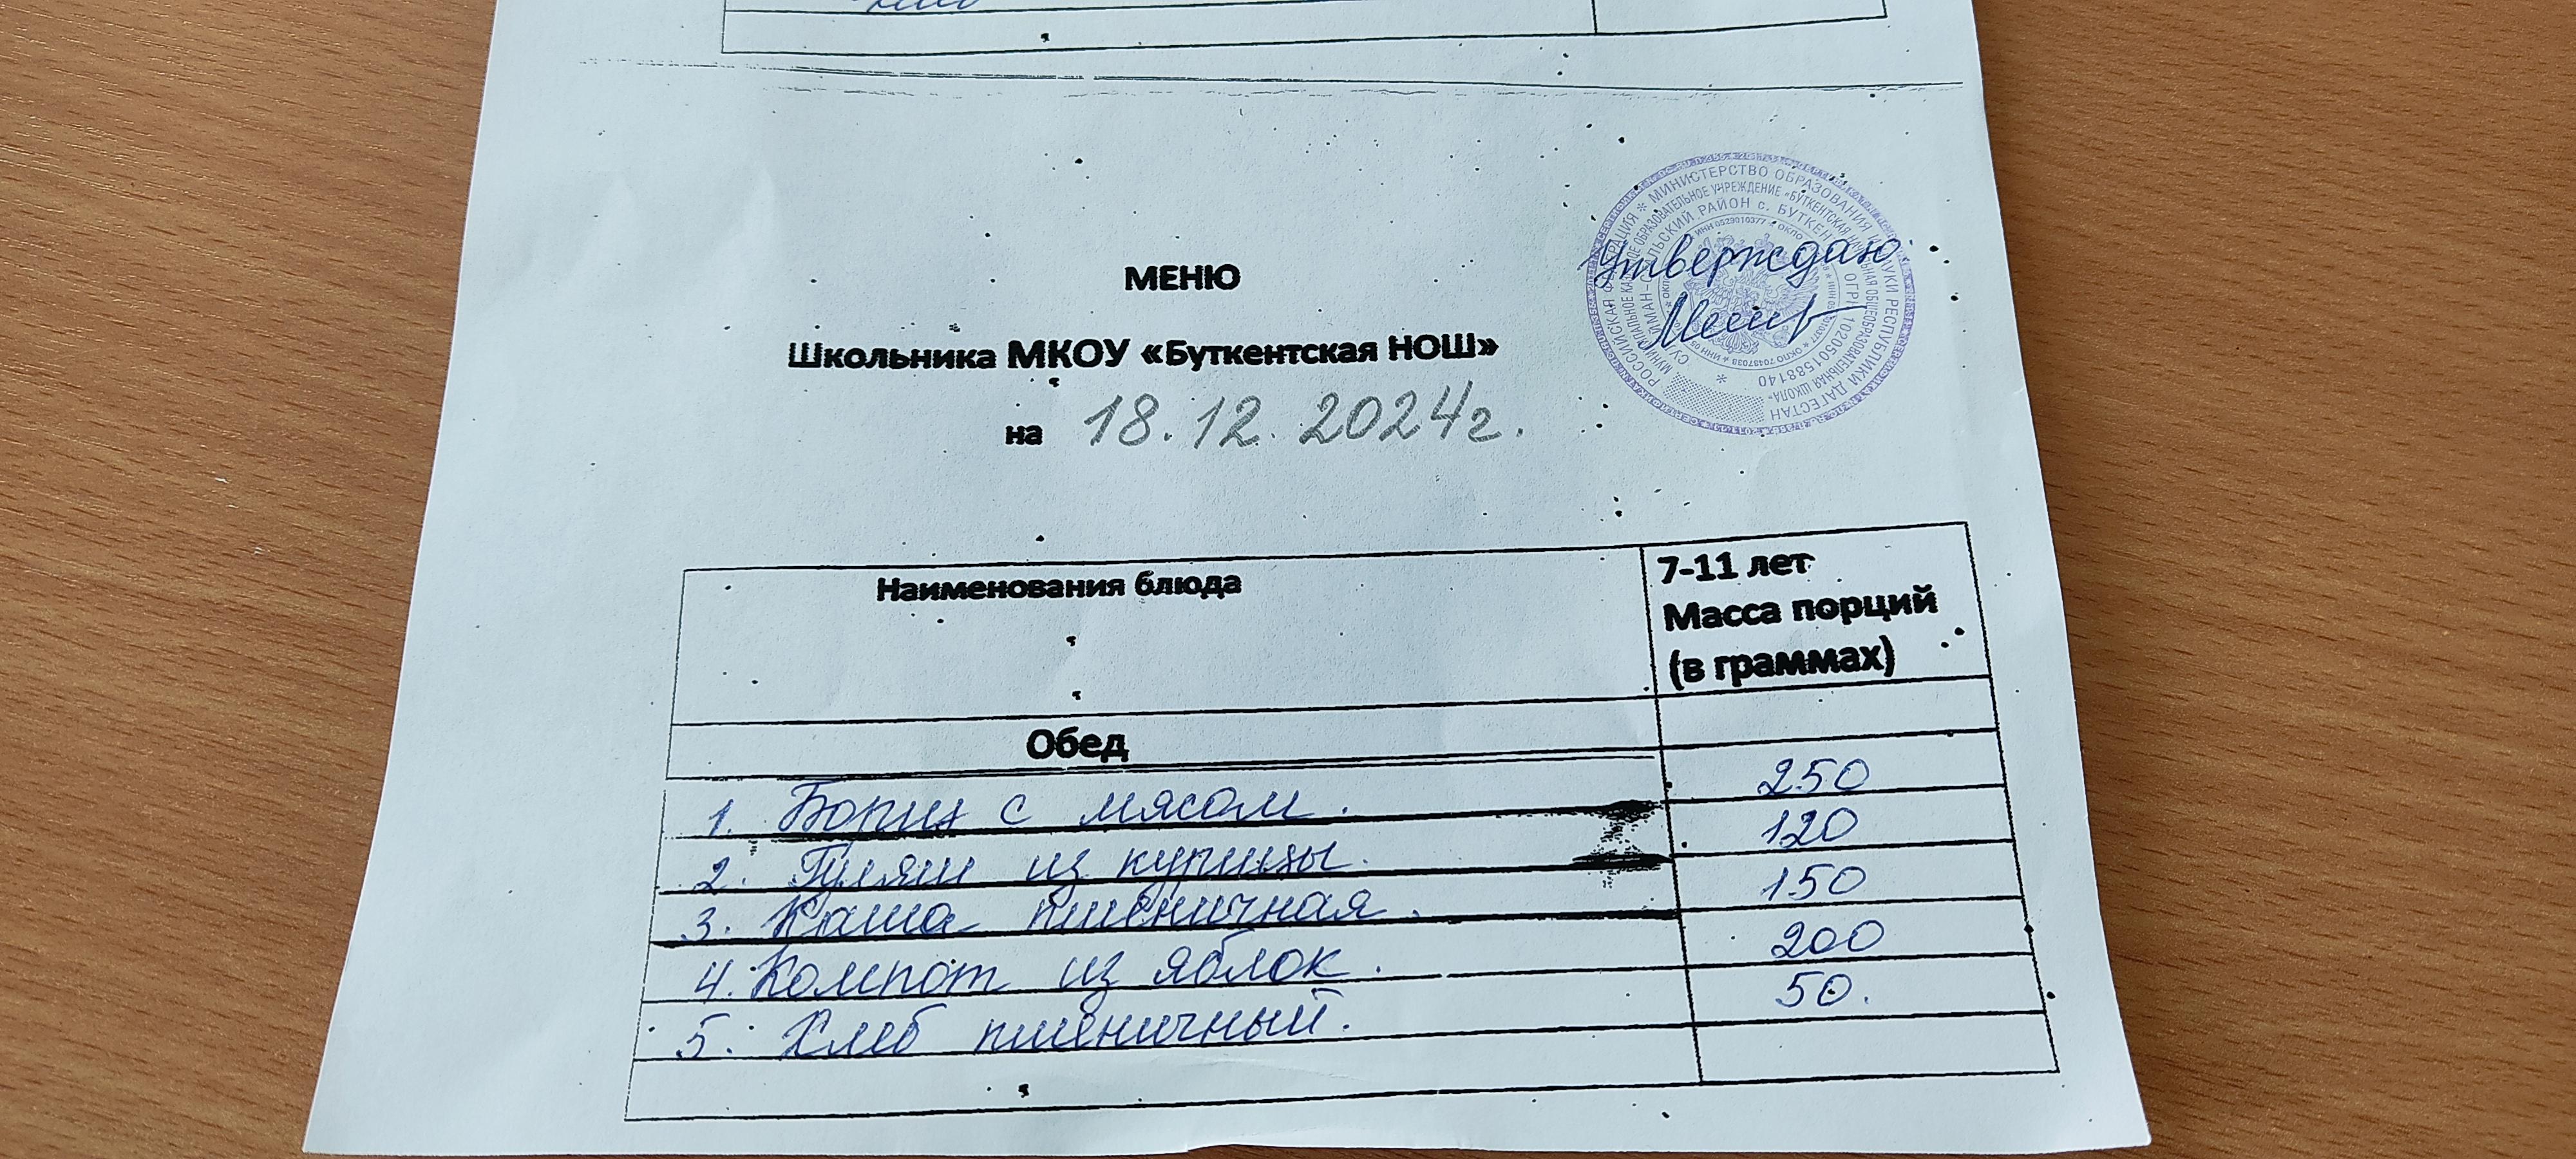 МЕНЮ
Школьника МКОУ «Буткентская НОШ»
на 18.12.2024г.
Утверждаю
РОССИЙСКАЯ ФЕДЕРАЦИЯ * МИНИСТЕРСТВО ОБРАЗОВАНИЯ И НАУКИ РЕСПУБЛИКИ ДАГЕСТАН
ОБРАЗОВАТЕЛЬНОЕ УЧРЕЖДЕНИЕ «БУТКЕНТСКАЯ НАЧАЛЬНАЯ ОБЩЕОБРАЗОВАТЕЛЬНАЯ ШКОЛА»
РАЙОН с. БУТКЕНТ
1020501588140
ИНН 0523010377
ОКПО 70487038
Наименования блюда
7-11 лет
Масса порций
(в граммах)
Обед
1. Борщ с мясом. 250
2. Гуляш из курицы. 120
3. Каша пшеничная. 150
4. Компот из яблок. 200
5. Хлеб пшеничный. 50.